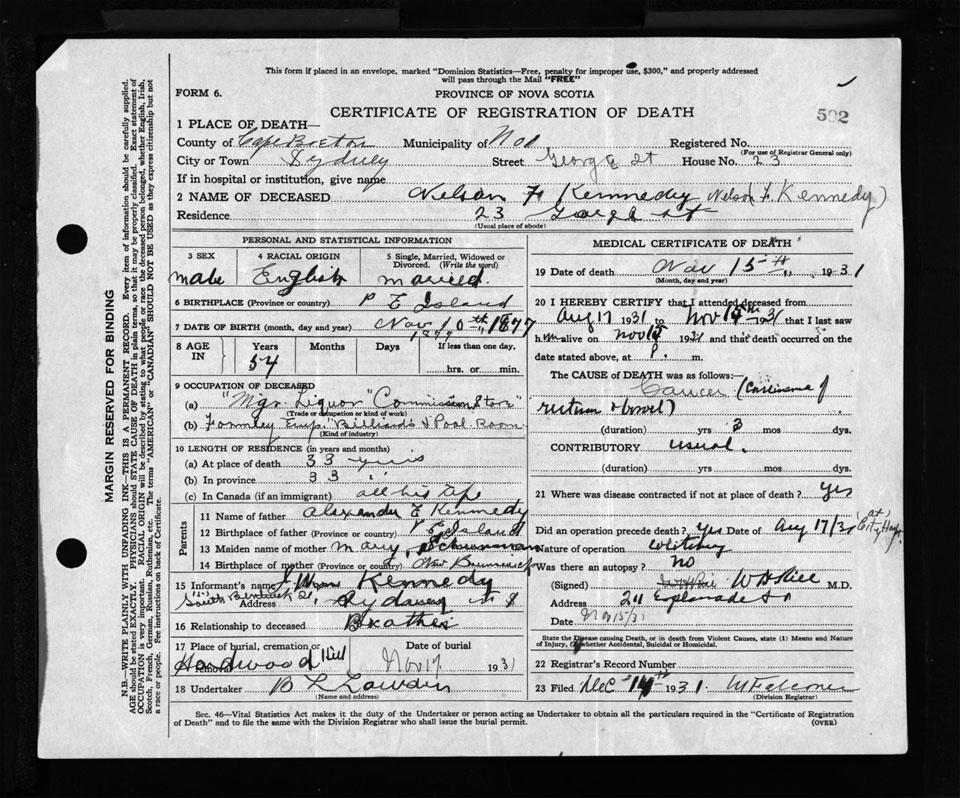 This form if placed in an envelope, marked "Dominion Statistics—Free, penalty for improper use, $300," and properly addressed
will pass through the Mail "FREE"
FORM 6.
PROVINCE OF NOVA SCOTIA
CERTIFICATE OF REGISTRATION OF DEATH
502
1 PLACE OF DEATH—
County of Cape Breton Municipality of Registered No.
(For use of Registrar General only)
City or Town Sydney Street George St House No. 23
If in hospital or institution, give name
2 NAME OF DECEASED Nelson F Kennedy (Nelson F. Kennedy)
Residence 23 George St
(Usual place of abode)
PERSONAL AND STATISTICAL INFORMATION
3 SEX 4 RACIAL ORIGIN 5 Single, Married, Widowed or Divorced. (Write the word)
male English married.
6 BIRTHPLACE (Province or country) P E Island
7 DATE OF BIRTH (month, day and year) Nov 10th 1877
1877
8 AGE IN Years Months Days If less than one day,
54 hrs. or min.
9 OCCUPATION OF DECEASED
(a) "Mgr. Liquor "Commission Store"
(Trade or occupation or kind of work)
(b) Formley Emp. "Billiards & Pool Room
(Kind of industry)
10 LENGTH OF RESIDENCE (in years and months)
(a) At place of death 33 yrs
(b) In province 33 "
(c) In Canada (if an immigrant) all his life
Parents
11 Name of father Alexander E Kennedy
12 Birthplace of father (Province or country) P E Island
13 Maiden name of mother Mary, Schurman
14 Birthplace of mother (Province or country) New Brunswick
15 Informant's name Kennedy
"151" South Bentinck St. Address Sydney N S
16 Relationship to deceased Brother
17 Place of burial, cremation or removal Date of burial
Hardwood Hill Nov 17 1931
18 Undertaker B L
(Name and address)
MEDICAL CERTIFICATE OF DEATH
19 Date of death Nov 15th 1931
(Month, day and year)
20 I HEREBY CERTIFY that I attended deceased from
Aug 17 1931 to Nov 15th 1931 that I last saw
him alive on Nov 15 1931 and that death occurred on the
date stated above, at P. m.
The CAUSE of DEATH was as follows:—
Cancer (Carcinoma of
rectum & bowel)
(duration) yrs 3 mos. dys.
CONTRIBUTORY usual.
(duration) yrs mos dys.
21 Where was disease contracted if not at place of death? Yes
Did an operation precede death? Yes. Date of Aug 17/31 (at City Hosp.)
Nature of operation
Was there an autopsy? no
(Signed) M.D.
Address 211 Esplanade
Date Nov 15/31
State the Disease causing Death, or in death from Violent Causes, state (1) Means and Nature
of Injury, (2) whether Accidental, Suicidal or Homicidal.
22 Registrar's Record Number
23 Filed Dec 14th 1931
(Division Registrar)
Sec. 46—Vital Statistics Act makes it the duty of the Undertaker or person acting as Undertaker to obtain all the particulars required in the "Certificate of Registration
of Death" and to file the same with the Division Registrar who shall issue the burial permit.
(OVER)
MARGIN RESERVED FOR BINDING
N.B.—WRITE PLAINLY WITH UNFADING INK—THIS IS A PERMANENT RECORD. Every item of information should be carefully supplied.
AGE should be stated EXACTLY. PHYSICIANS should STATE CAUSE OF DEATH in plain terms, so that it may be properly classified. Exact statement of
OCCUPATION is very important. RACIAL ORIGIN will be described by stating to what people or race the deceased person belonged, whether English, Irish,
Scotch, French, German, Russian, Ruthenian, etc. The terms "AMERICAN" or "CANADIAN" SHOULD NOT BE USED as they express citizenship but not
a race or people. See instructions on back of Certificate.